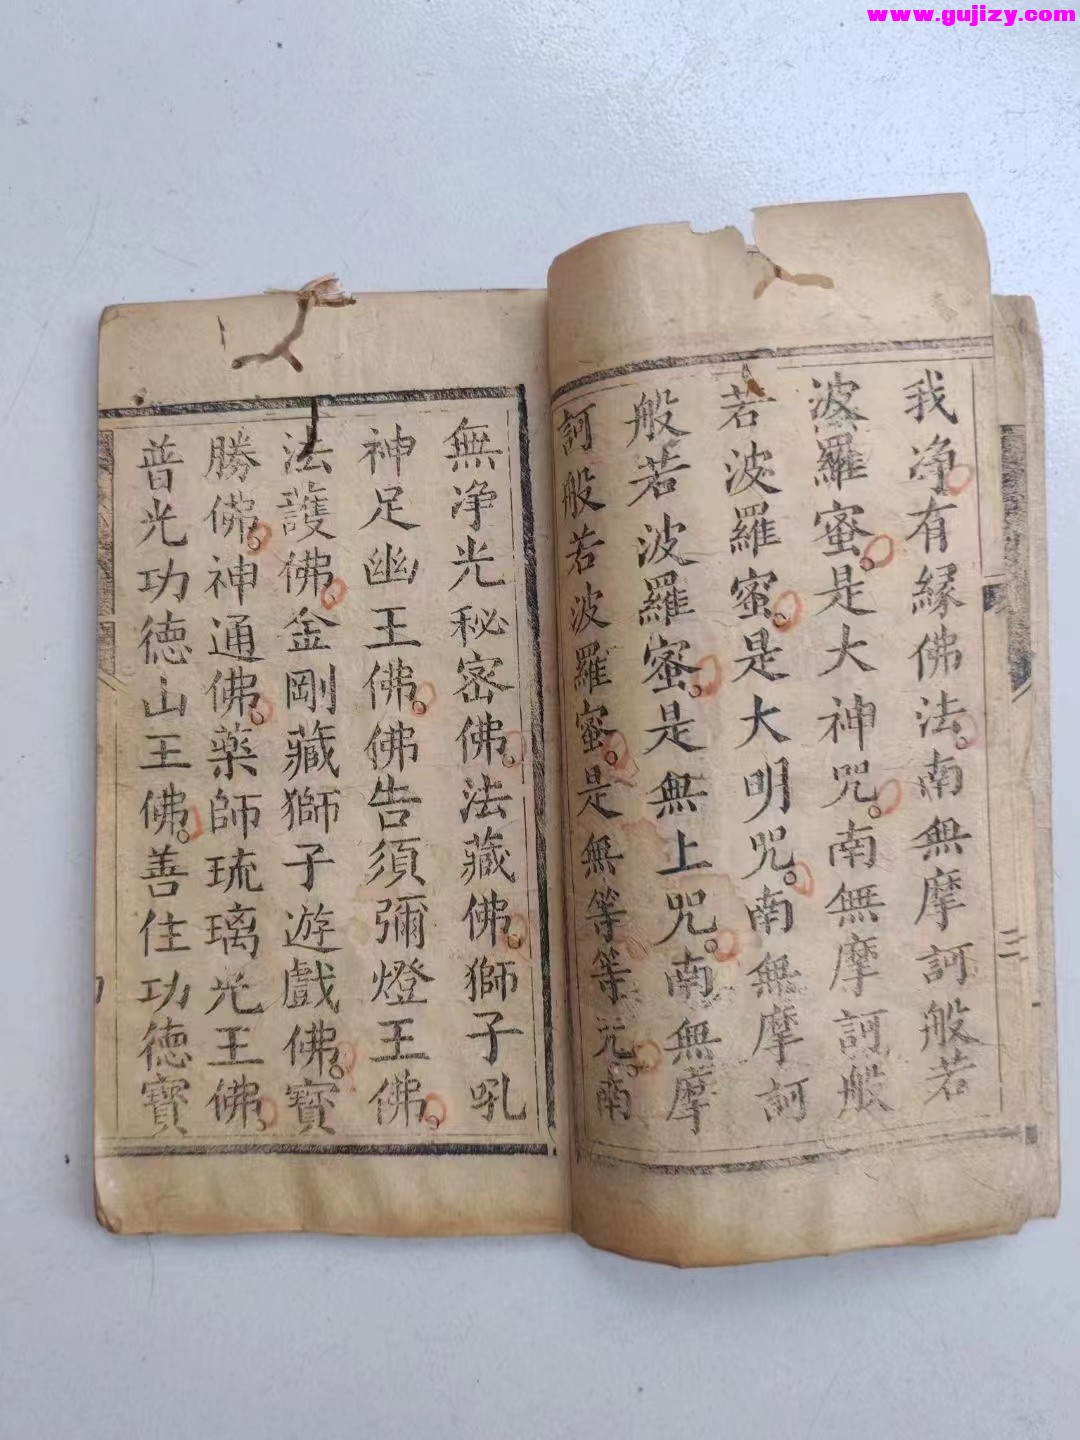 www.gujizy.com
我净有緣佛法。南無摩訶般若
波羅蜜。是大神咒。南無摩訶般
若波羅蜜。是大明咒。南無摩訶
般若波羅蜜。是無上咒。南無摩
訶般若波羅蜜。是無等等咒。南
三
無净光秘密佛。法藏佛。獅子吼
神足幽王佛。佛告須彌燈王佛。
法護佛。金剛藏獅子遊戲佛。寶
勝佛。神通佛。藥師琉璃光王佛。
普光功德山王佛。善住功德寶